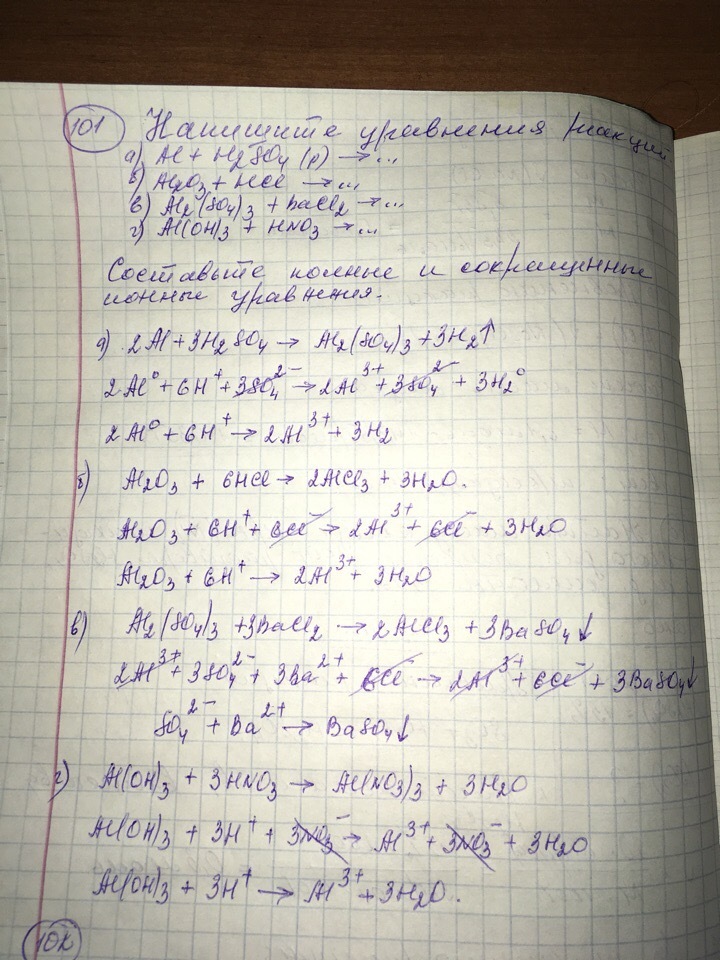 101 Напишите уравнения реакций
а) Al + H₂SO₄ (р) → ...
б) Al₂O₃ + HCl → ...
в) Al₂(SO₄)₃ + BaCl₂ → ...
г) Al(OH)₃ + HNO₃ → ...
Составьте полные и сокращенные
ионные уравнения.
а) 2Al + 3H₂SO₄ → Al₂(SO₄)₃ + 3H₂↑
2Al⁰ + 6H⁺ + 3SO₄²⁻ → 2Al³⁺ + 3SO₄²⁻ + 3H₂⁰
2Al⁰ + 6H⁺ → 2Al³⁺ + 3H₂
б) Al₂O₃ + 6HCl → 2AlCl₃ + 3H₂O.
Al₂O₃ + 6H⁺ + 6Cl⁻ → 2Al³⁺ + 6Cl⁻ + 3H₂O
Al₂O₃ + 6H⁺ → 2Al³⁺ + 3H₂O
в) Al₂(SO₄)₃ + 3BaCl₂ → 2AlCl₃ + 3BaSO₄↓
2Al³⁺ + 3SO₄²⁻ + 3Ba²⁺ + 6Cl⁻ → 2Al³⁺ + 6Cl⁻ + 3BaSO₄↓
SO₄²⁻ + Ba²⁺ → BaSO₄↓
г) Al(OH)₃ + 3HNO₃ → Al(NO₃)₃ + 3H₂O
Al(OH)₃ + 3H⁺ + 3NO₃⁻ → Al³⁺ + 3NO₃⁻ + 3H₂O
Al(OH)₃ + 3H⁺ → Al³⁺ + 3H₂O.
102